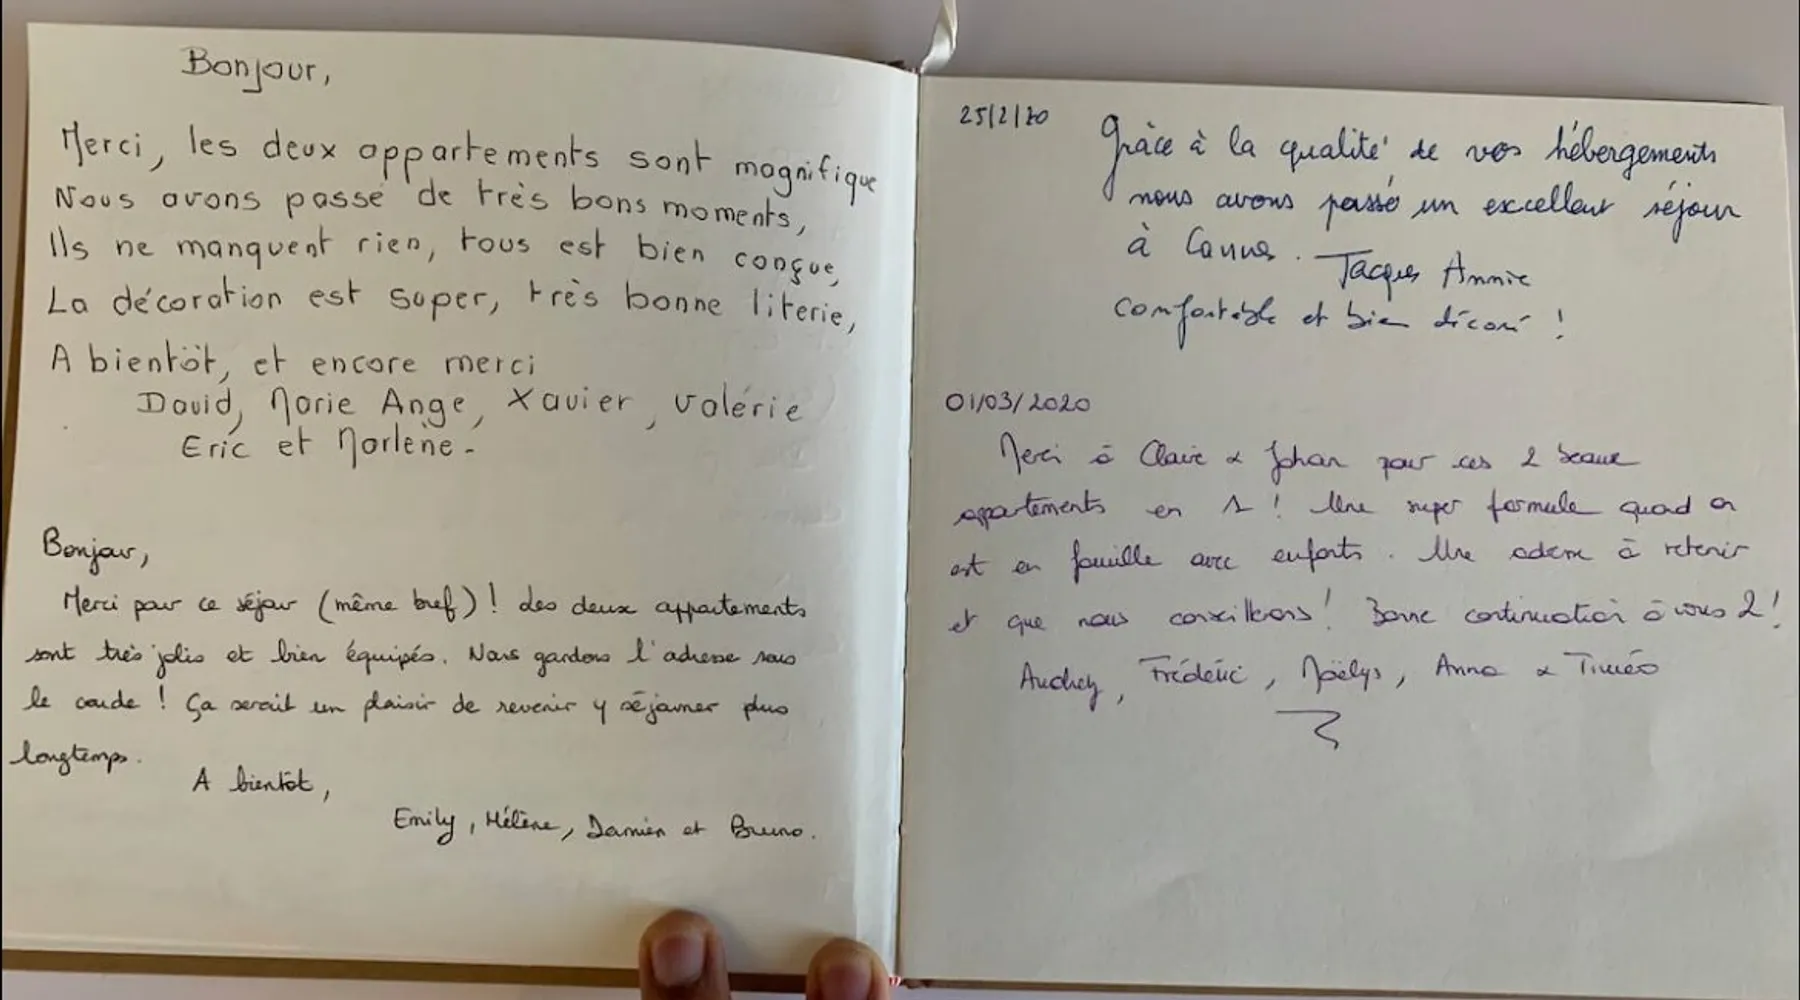 Bonjour,
Merci, les deux appartements sont magnifique
Nous avons passé de très bons moments,
Ils ne manquent rien, tous est bien conçue,
La décoration est super, très bonne literie,
A bientôt, et encore merci
David, Marie Ange, Xavier, Valérie
Eric et Marlène -
Bonjour,
Merci pour ce séjour (même bref) ! Les deux appartements
sont très jolis et bien équipés. Nous gardons l'adresse sous
le coude ! Ça serait un plaisir de revenir y séjourner plus
longtemps.
A bientôt,
Emily, Hélène, Damien et Bruno.
25/2/20
Grâce à la qualité de vos hébergements
nous avons passé un excellent séjour
à Cannes. Jacques Annie
Comfortable et bien décoré !
01/03/2020
Merci à Claire & Johan pour ces 2 beaux
appartements en 1 ! Une super formule quand on
est en famille avec enfants. Une adresse à retenir
et que nous conseillerons ! Bonne continuation à vous 2 !
Audrey, Frédéric, Maëlys, Anna & Timéo